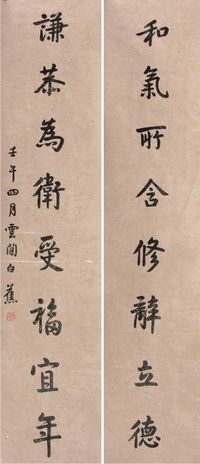 和氣所含修辭立德
謙恭為衛受福宜年
壬午四月雲間白蕉